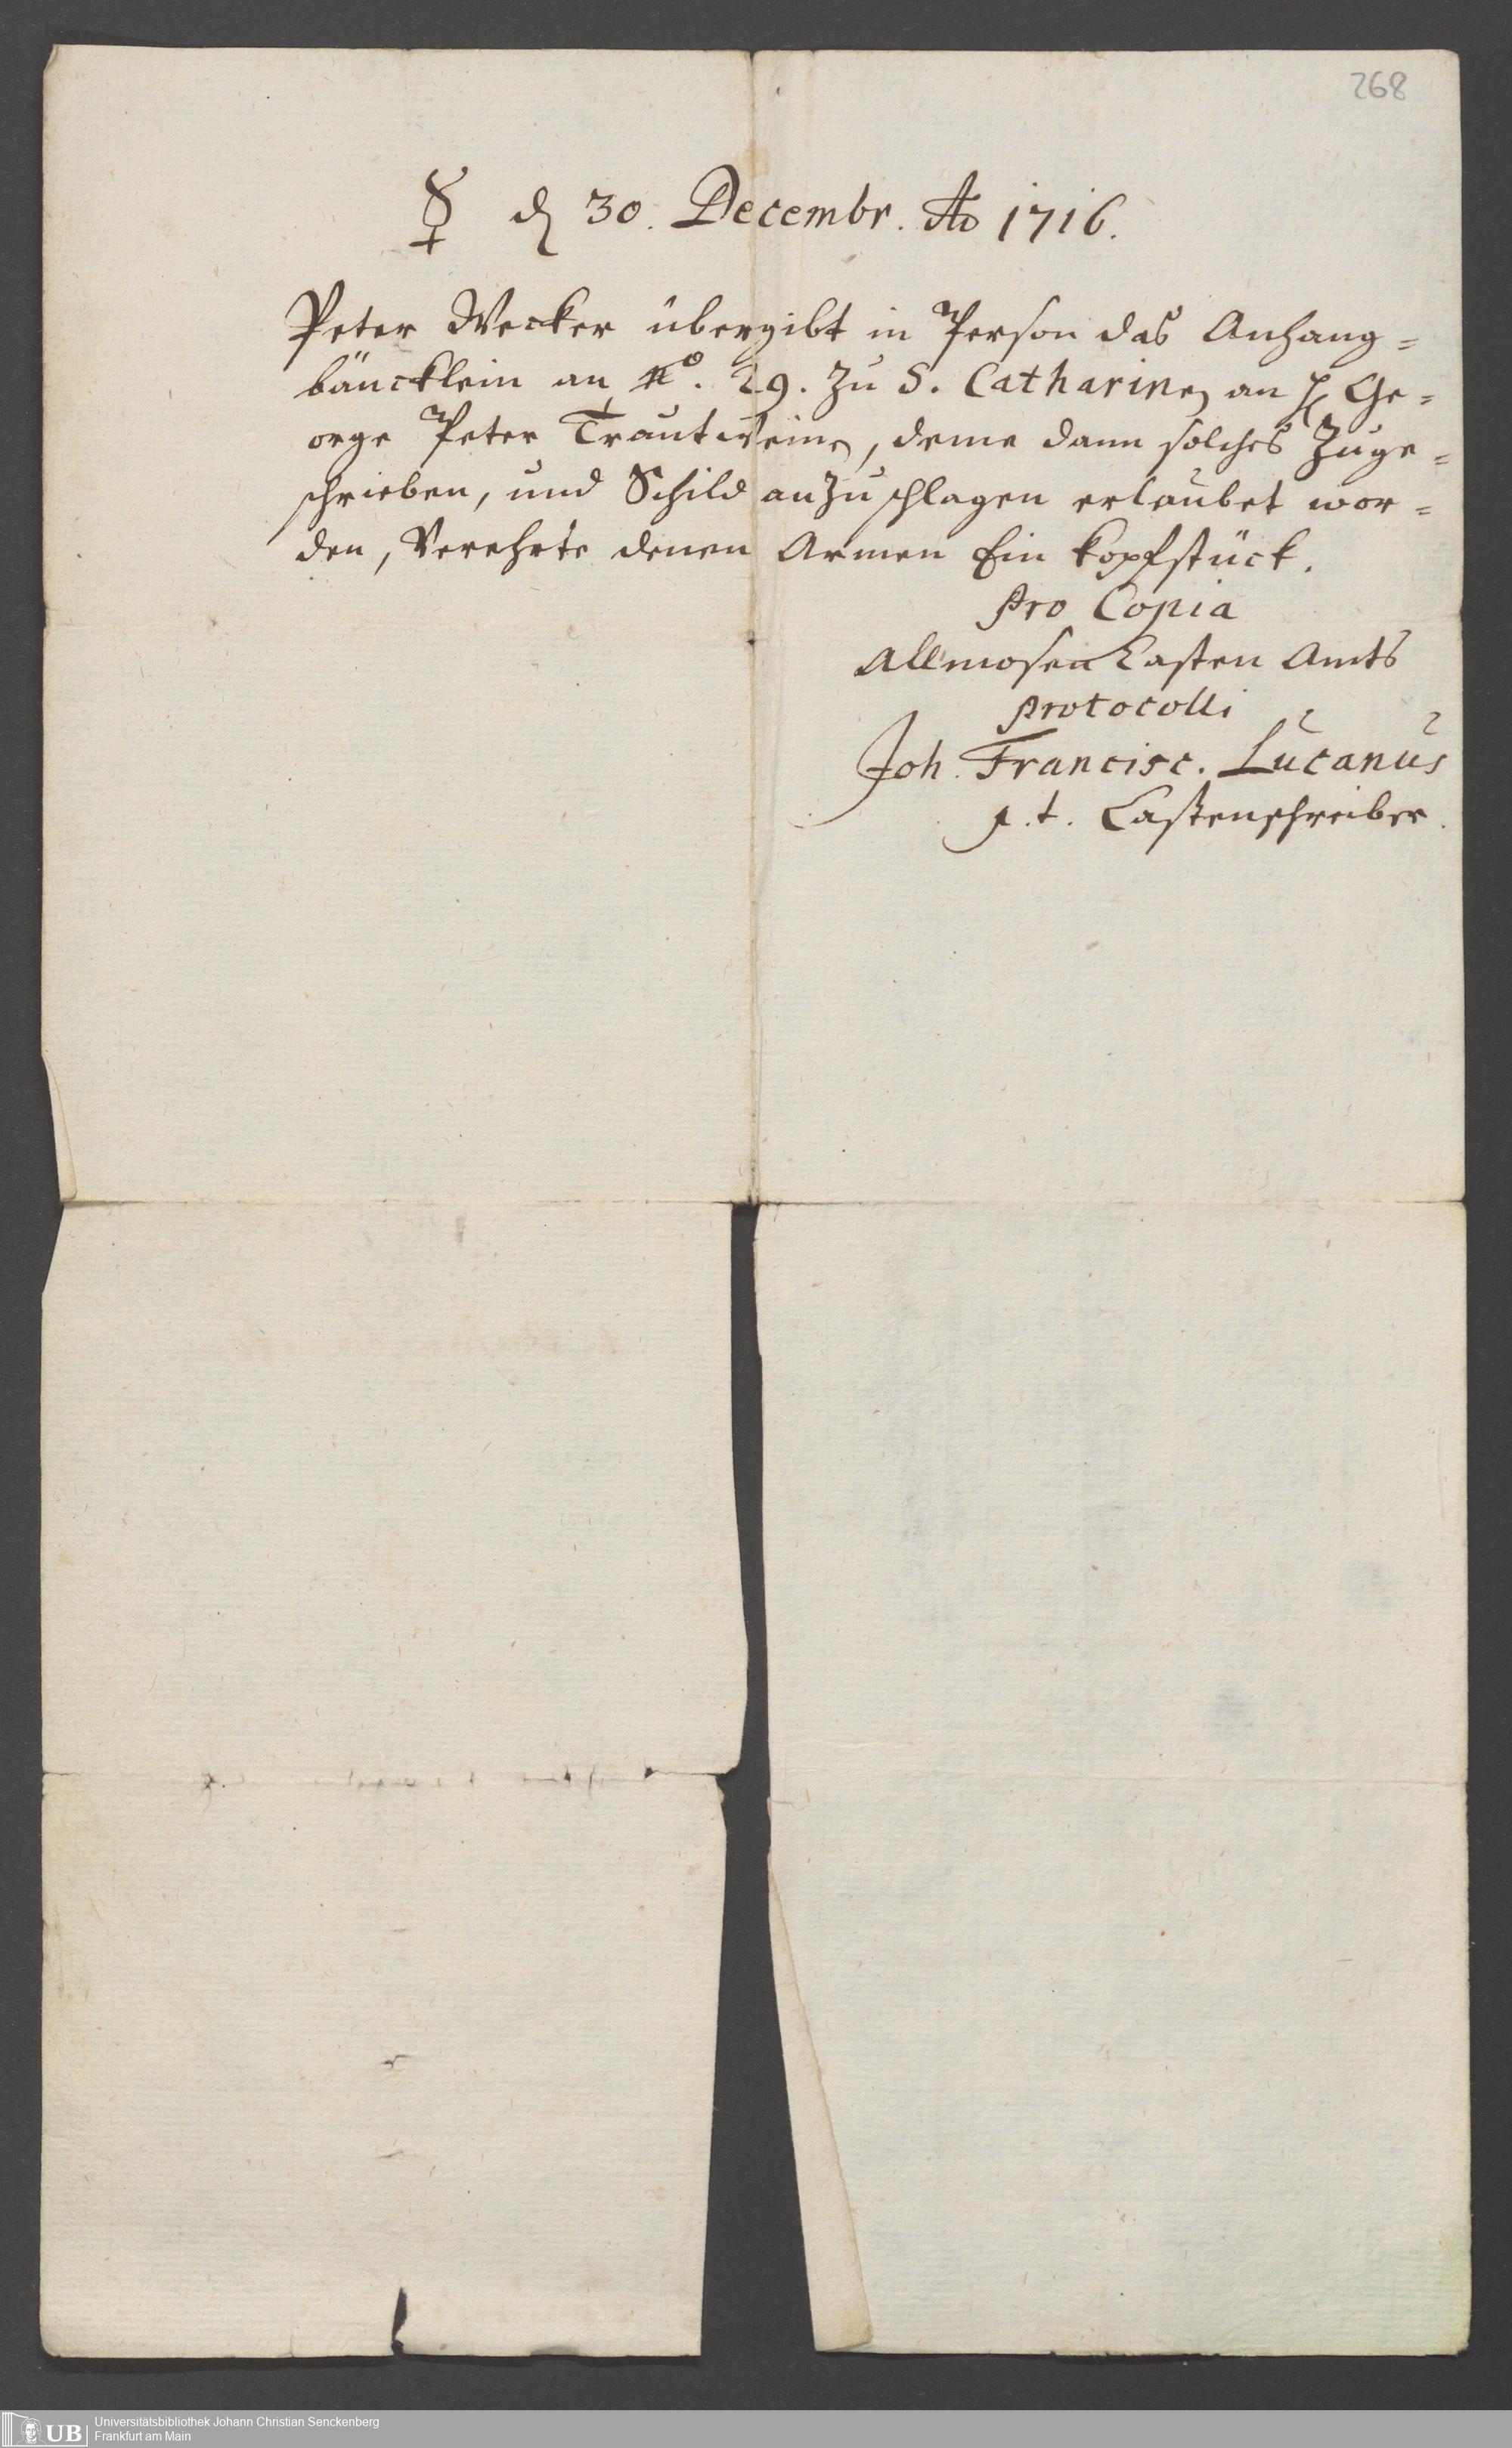 268
☿ d 30. Decembr. Ao 1716.
Peter Wecker übergibt in Person das Anhang=
bäncklein an No. 29. zu S. Catharinen an H. Ge=
orge Peter Trautweinen, deme dann solches zuge=
schrieben, und Schild anzuschlagen erlaubet wor=
den, Verehrte denen Armen Ein Kopfstück.
pro Copia
Allmosen Casten Amts
protocolli
Joh. Francisc. Lucanus
p.t. Castenschreiber.
UB
Universitätsbibliothek Johann Christian Senckenberg
Frankfurt am Main